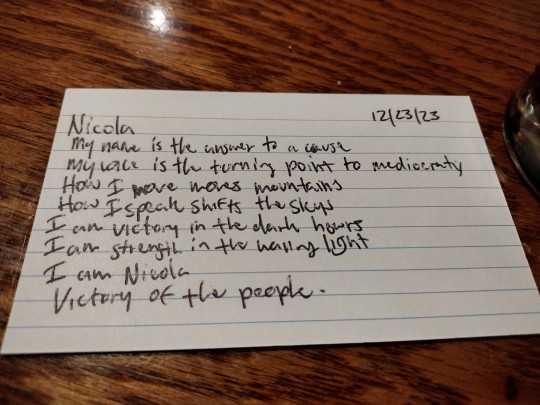 Nicola 12/23/23
My name is the answer to a cause
My voice is the turning point to mediocraty
How I move moves mountains
How I speak shifts the skys
I am victory in the dark hours
I am strength in the waning light
I am Nicola
Victory of the people.